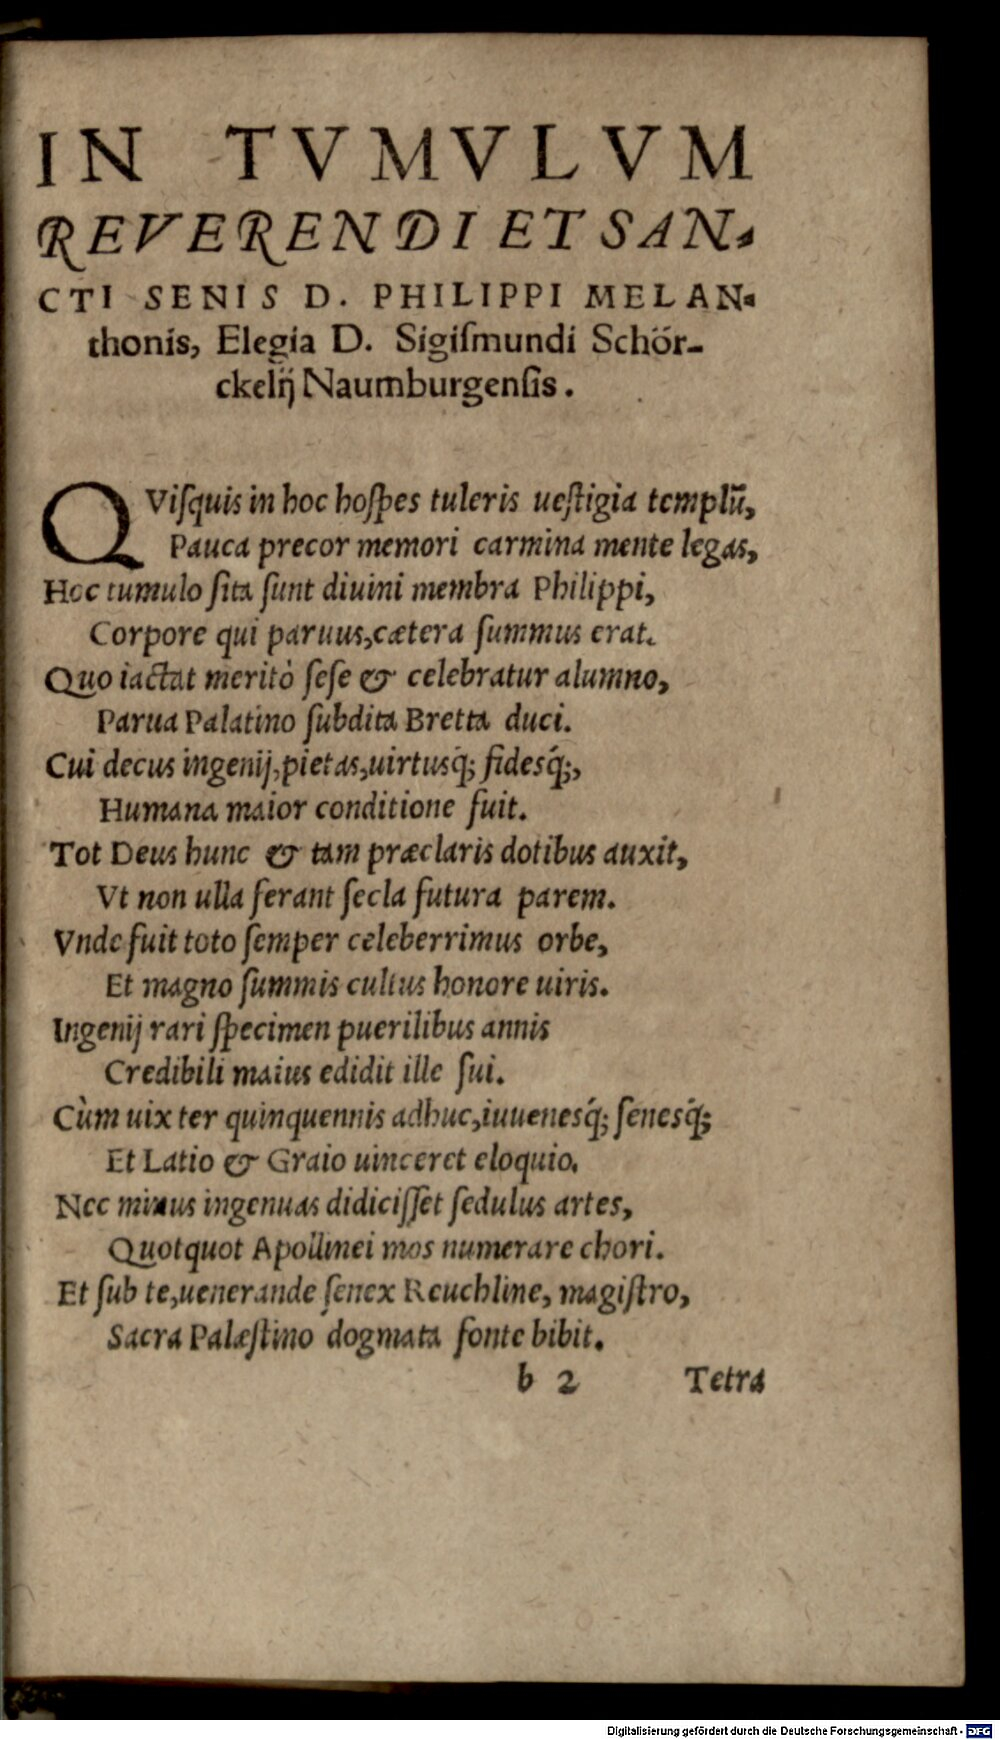 IN TVMVLVM
REVERENDI ET SAN-
CTI SENIS D. PHILIPPI MELAN-
thonis, Elegia D. Sigiſmundi Schör-
ckelij Naumburgenſis.
QViſquis in hoc hoſpes tuleris ueſtigia templū,
Pauca precor memori carmina mente legas,
Hoc tumulo ſita ſunt diuini membra Philippi,
Corpore qui paruus, cætera ſummus erat.
Quo iactat meritò ſeſe & celebratur alumno,
Parua Palatino ſubdita Bretta duci.
Cui decus ingenij, pietas, uirtusq́; fidesq́;,
Humana maior conditione fuit.
Tot Deus hunc & tam præclaris dotibus auxit,
Vt non ulla ferant ſecla futura parem.
Vnde fuit toto ſemper celeberrimus orbe,
Et magno ſummis cultus honore uiris.
Ingenij rari ſpecimen puerilibus annis
Credibili maius edidit ille ſui.
Cùm uix ter quinquennis adhuc, iuuenesq́; ſenesq́;
Et Latio & Graio uinceret eloquio.
Nec minus ingenuas didiciſſet ſedulus artes,
Quotquot Apollinei mos numerare chori.
Et ſub te, uenerande ſenex Reuchline, magiſtro,
Sacra Palæſtino dogmata fonte bibit.
b 2 Tetra
Digitalisierung gefördert durch die Deutsche Forschungsgemeinschaft - DFG